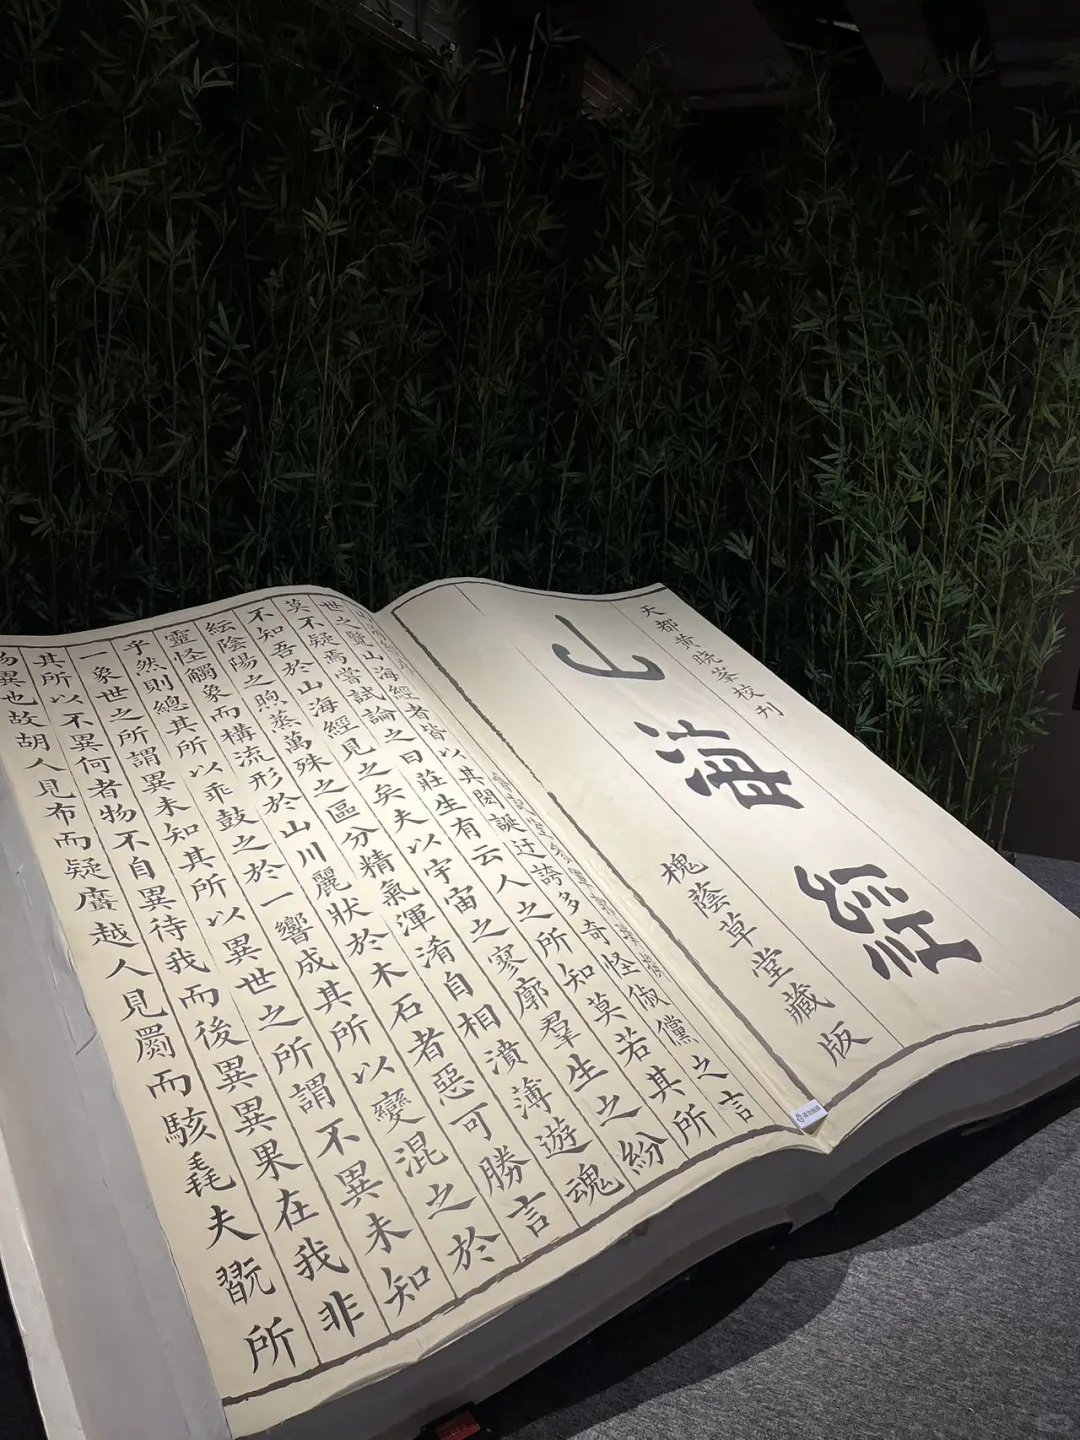 天都黄晓峯校刊
山海經
槐蔭草堂藏版
世之覽山海經者皆以其閎誕迂誇多奇怪俶儻之言
莫不疑焉嘗試論之曰莊生有云人之所知莫若其所
不知吾於山海經見之矣夫以宇宙之寥廓羣生之紛
紜陰陽之煦蒸萬殊之區分精氣渾淆自相濆薄遊魂
靈怪觸象而構流形於山川麗狀於木石者惡可勝言
乎然則總其所以乖鼓之於一響成其所以變混之於
一象世之所謂異未知其所以異世之所謂不異未知
其所以不異何者物不自異待我而後異異果在我非
物異也故胡人見布而疑黂越人見罽而駭毳夫翫所